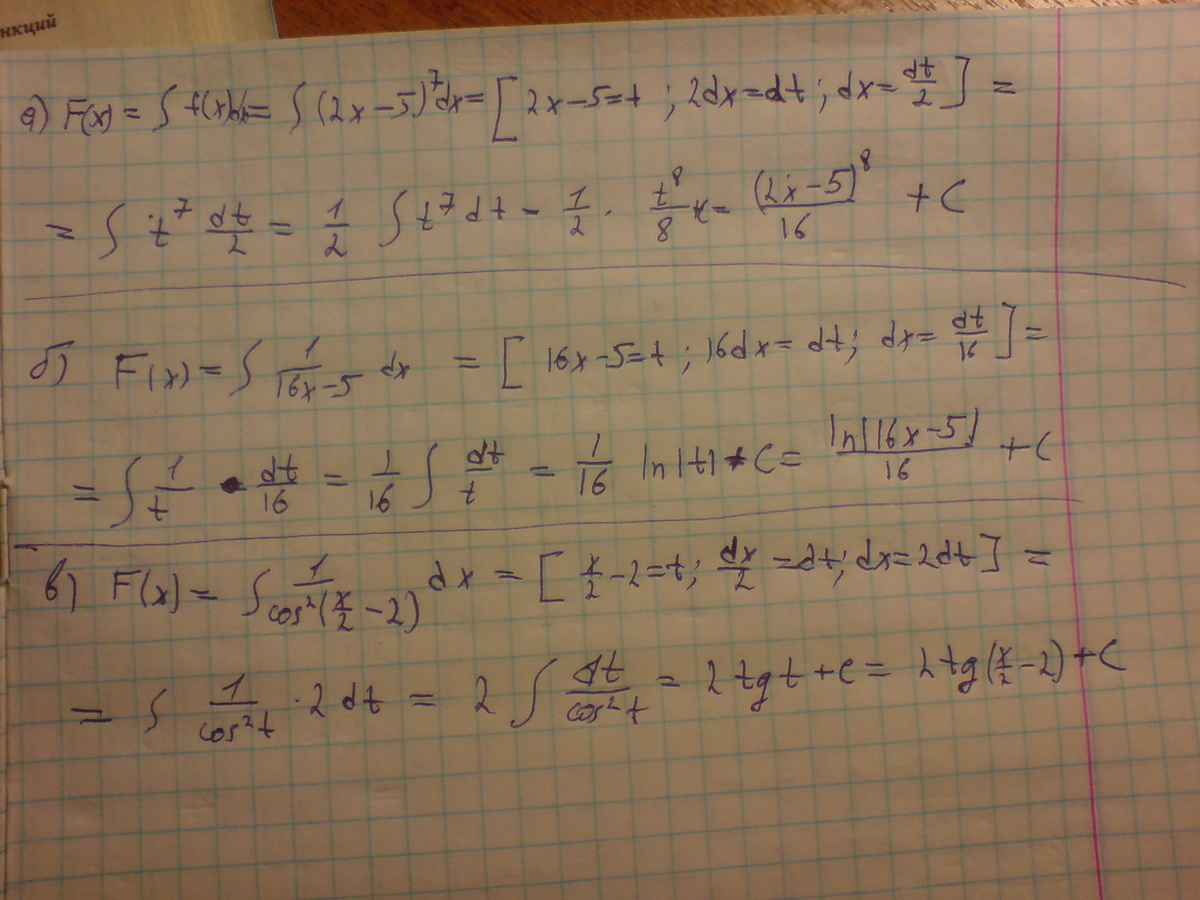 нкций
а) F(x) = ∫ f(x)dx = ∫ (2x − 5)⁷dx = [ 2x − 5 = t ; 2dx = dt ; dx = dt/2 ] =
= ∫ t⁷ dt/2 = 1/2 ∫ t⁷ dt − 1/2 · t⁸/8 = (2x − 5)⁸/16 + C
б) F(x) = ∫ 1/(16x − 5) dx = [ 16x − 5 = t ; 16dx = dt ; dx = dt/16 ] =
= ∫ 1/t · dt/16 = 1/16 ∫ dt/t = 1/16 ln|t| + C = ln|16x − 5|/16 + C
в) F(x) = ∫ 1/cos²(x/2 − 2) dx = [ x/2 − 2 = t ; dx/2 = dt ; dx = 2dt ] =
= ∫ 1/cos²t · 2 dt = 2 ∫ dt/cos²t = 2 tg t + C = 2 tg(x/2 − 2) + C